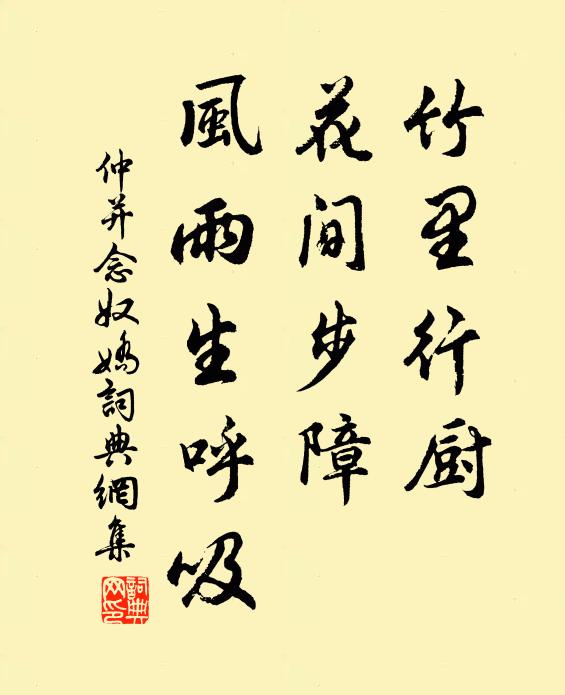 竹里行厨
花间步障
風雨生呼吸
仲并念奴嬌詞典網集
詞典网印